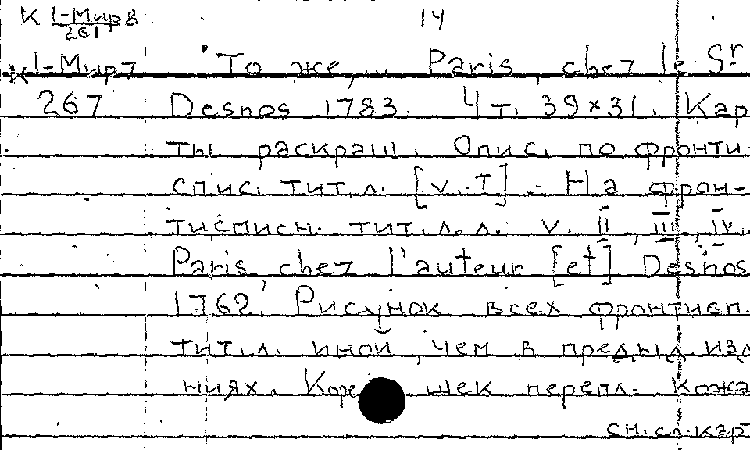 К 1-Мир8 14
261
1-Мир7 То же, ... Paris, chez le Sr
267 Desnos 1783. 4 т. 39×31. Кар
ты раскраш. Опис. по фронти
спис. тит. л. [v. I] - На фрон-
тисписн. тит. л. л. v. II, III, IV.
Paris, chez l'auteur [et] Desnos
1762. Рисунок всех фронтисп.
тит. л. иной, чем в предыд. изд
ниях. перепл. кожа
сн. сл. кар